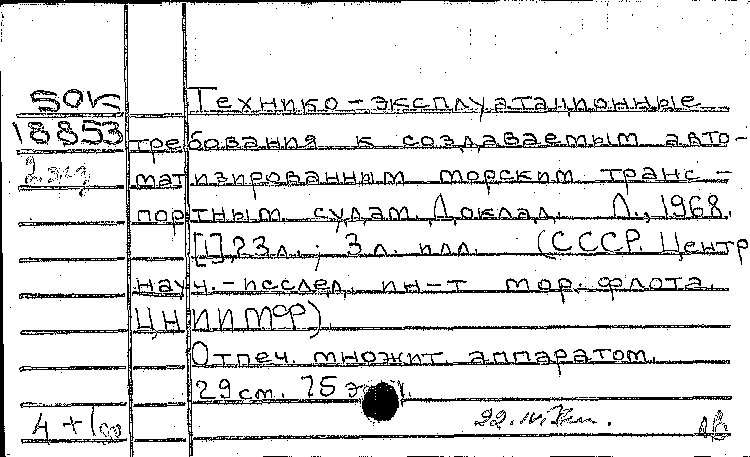 БОК Технико-эксплуатационные
18853 требования к создаваемым авто-
2 экз матизированным морским транс-
портным судам. Доклад. Л., 1968.
[1], 23 л.; 3 л. илл. (СССР. Центр
науч.-исслед. ин-т мор. флота.
ЦНИИМФ).
Отпеч. множит. аппаратом.
29 см. 75 экз.
4 +